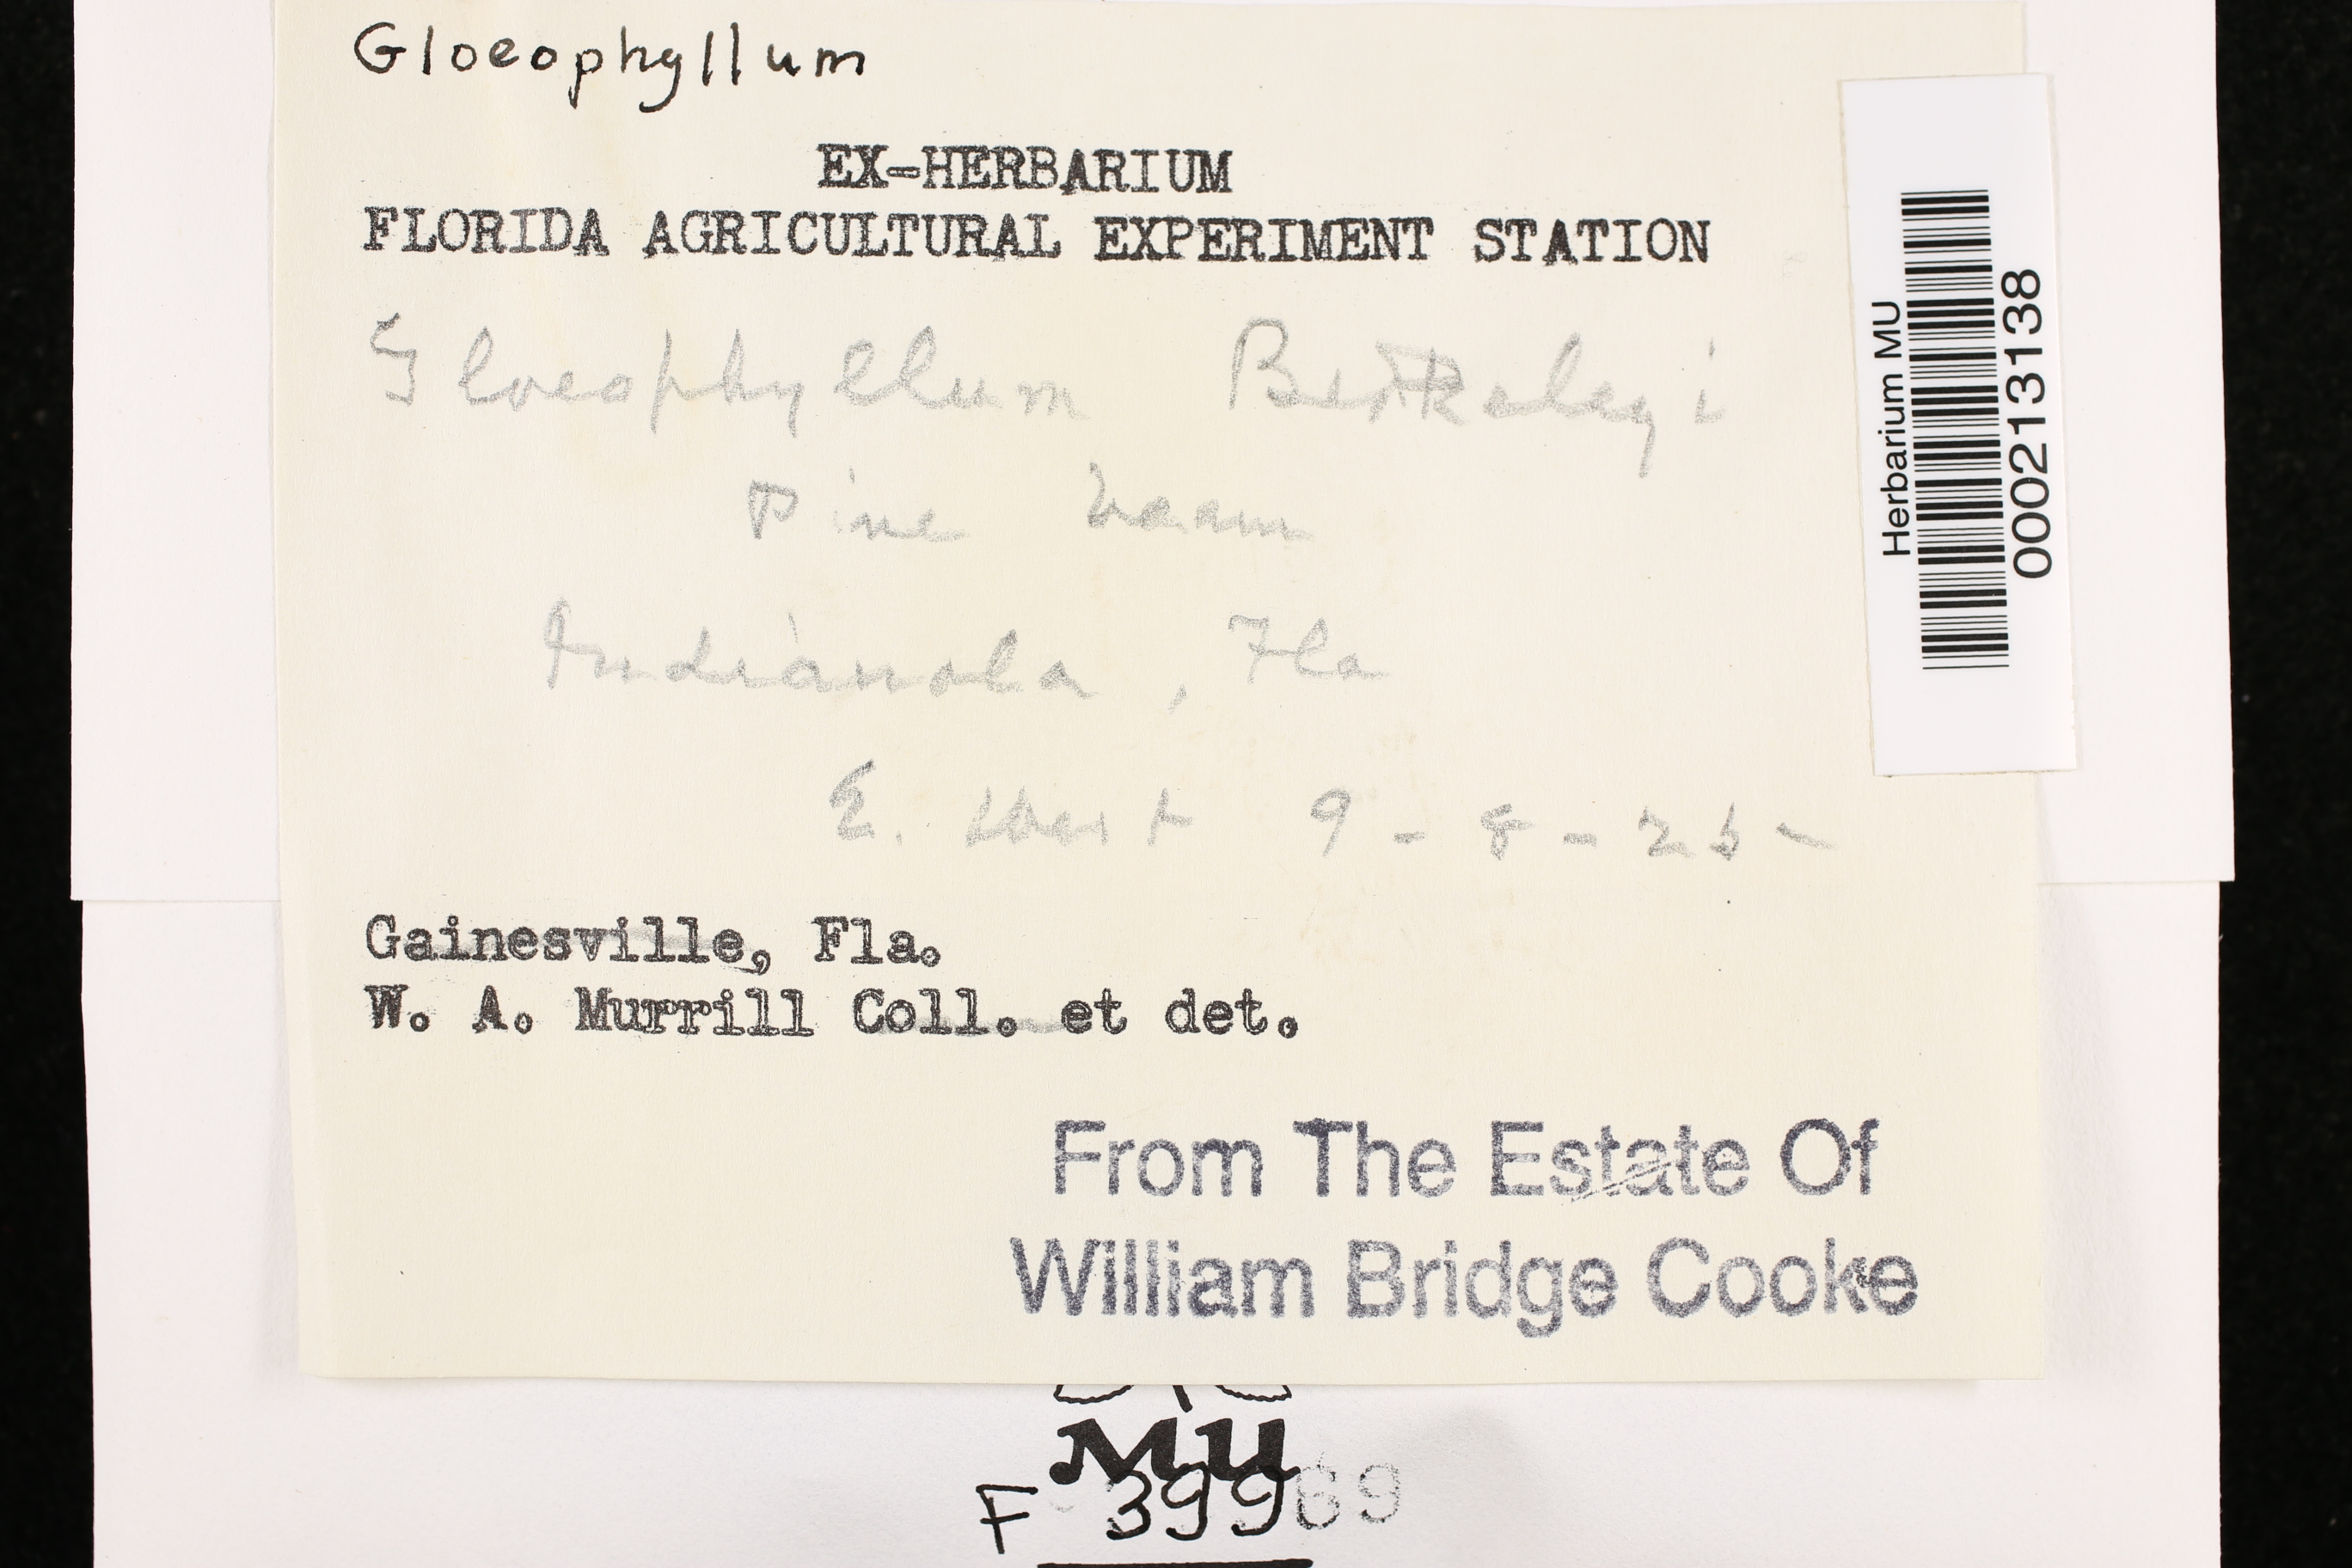 Gloeophyllum
EX-HERBARIUM
FLORIDA AGRICULTURAL EXPERIMENT STATION
Gloeophyllum Berkeleyi
Pine beam
Indianola, Fla
E. West 9-8-25-
Gainesville, Fla.
W. A. Murrill Coll. et det.
From The Estate Of
William Bridge Cooke
Herbarium MU
000213138
MU
F 39969